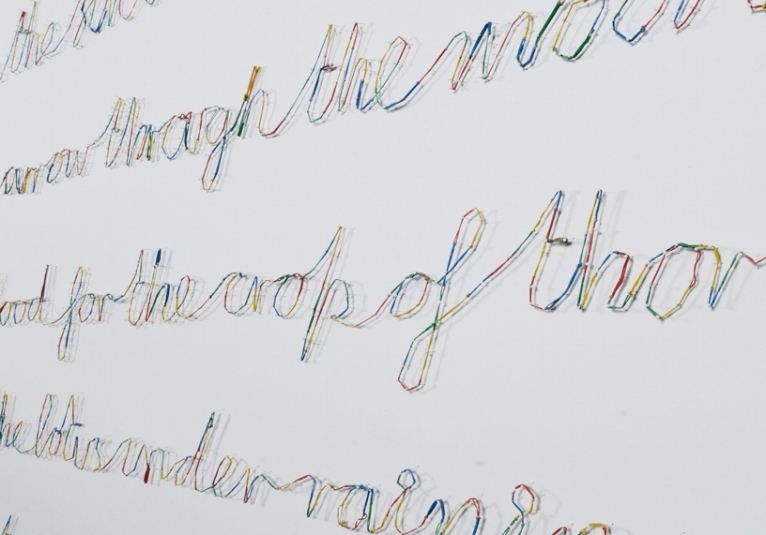 the
arrow through the moo
for the crop of thor
the lotis under rain